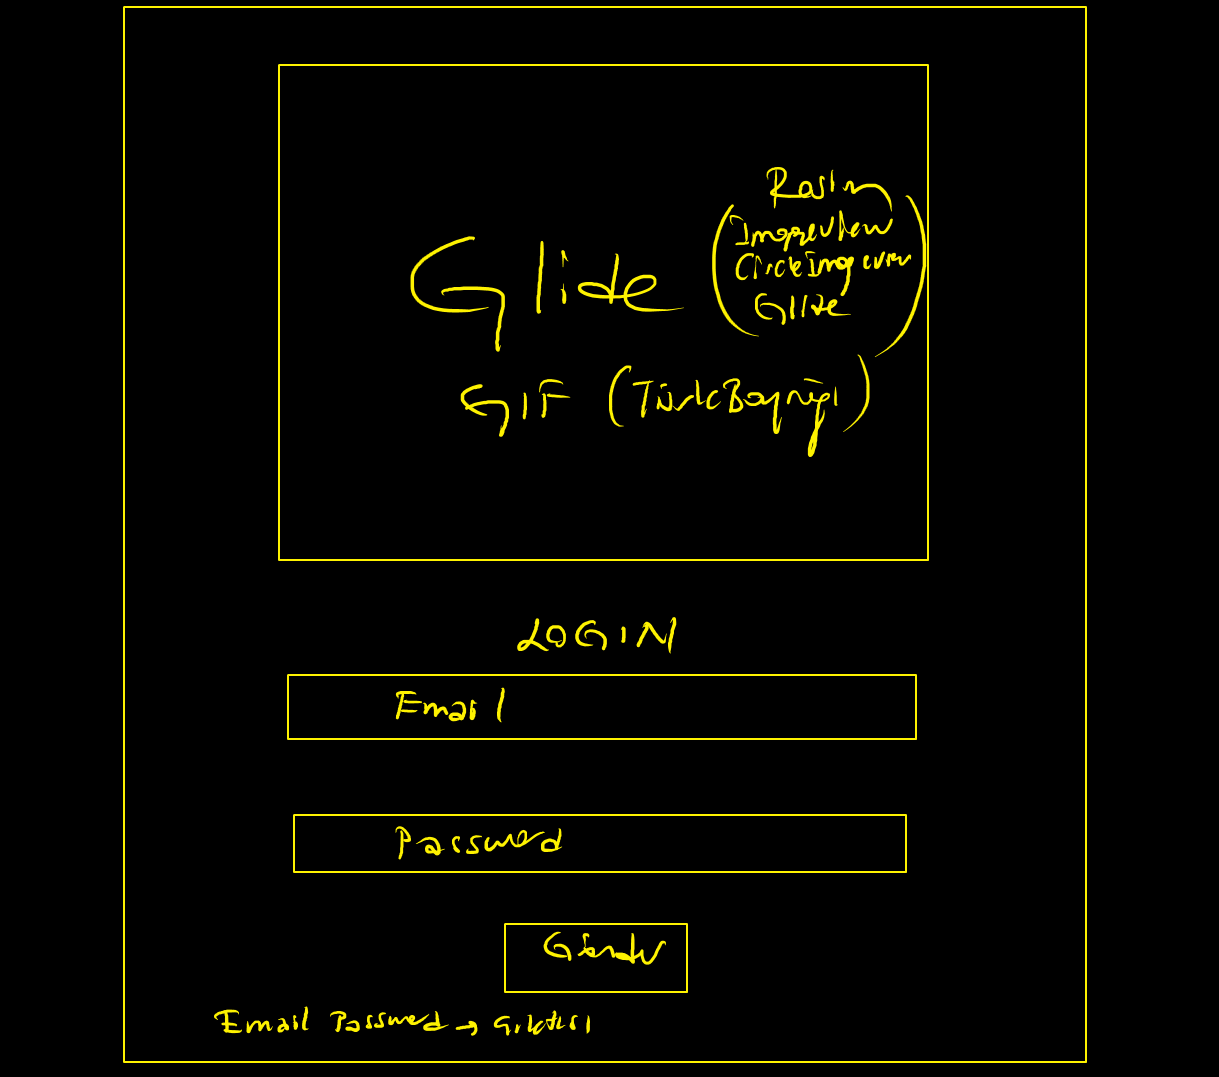 Resim
Imageview
CircleImageview
Glide
Glide
GIF (Türk Bayrağı)
LOGIN
Email
Password
Gönder
Email Password →